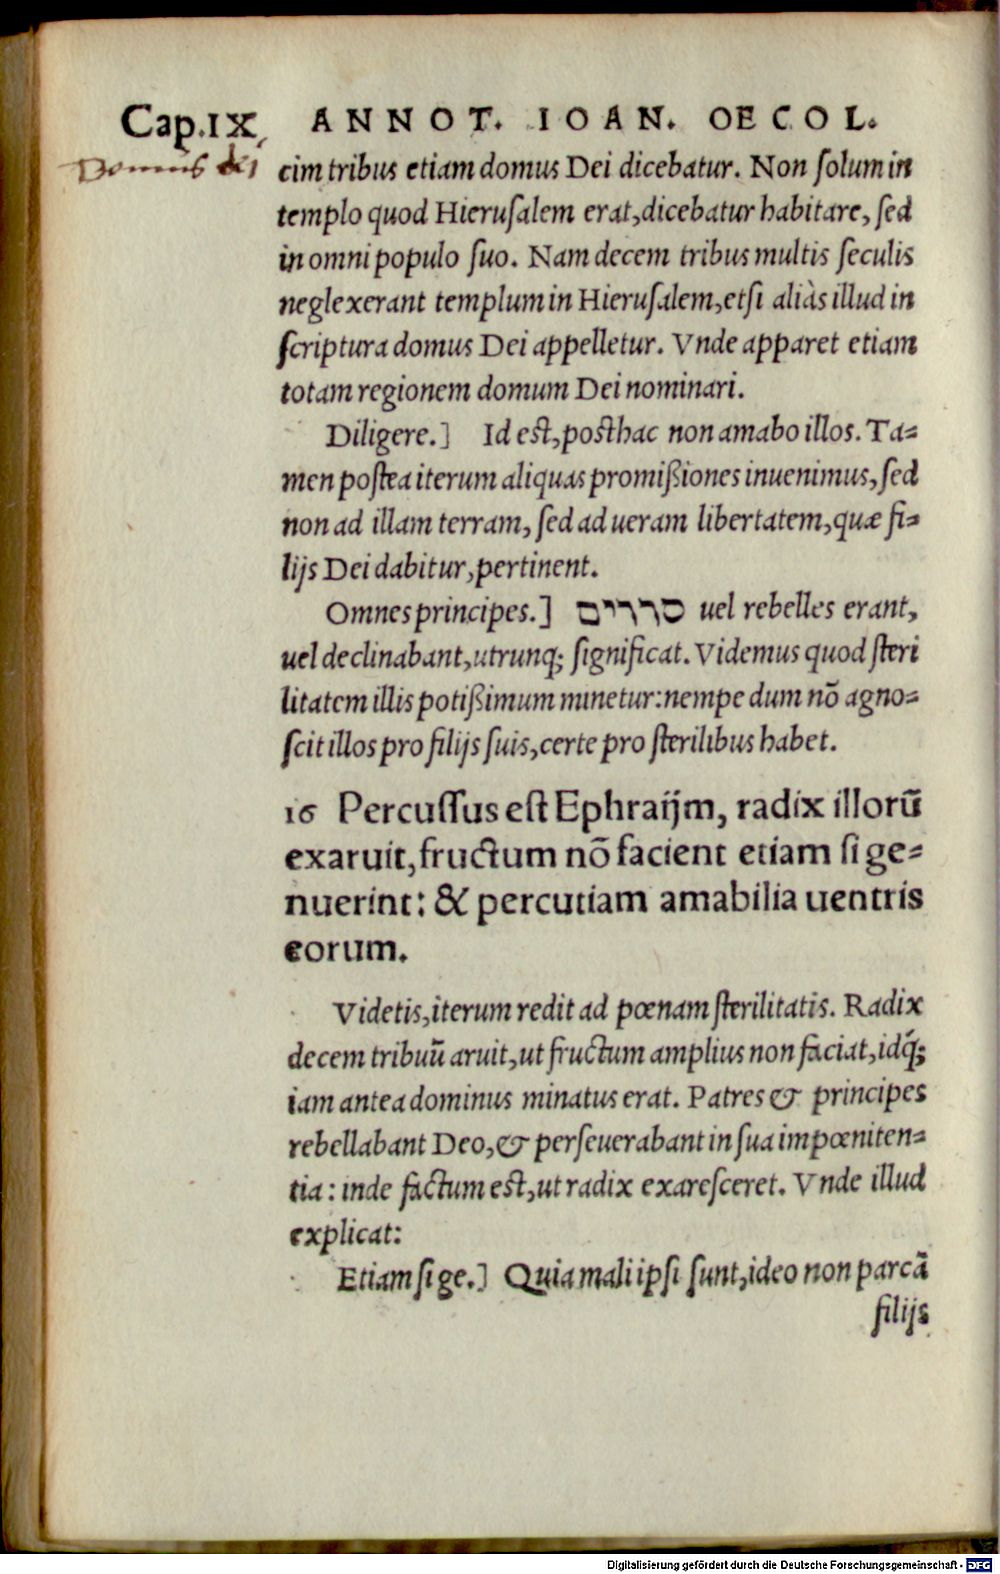 Cap.IX. ANNOT. IOAN. OECOL.
Domus dei
cim tribus etiam domus Dei dicebatur. Non ſolum in
templo quod Hieruſalem erat, dicebatur habitare, ſed
in omni populo ſuo. Nam decem tribus multis ſeculis
neglexerant templum in Hieruſalem, etſi aliàs illud in
ſcriptura domus Dei appelletur. Vnde apparet etiam
totam regionem domum Dei nominari.
Diligere.] Id eſt, poſthac non amabo illos. Ta-
men poſtea iterum aliquas promißiones inuenimus, ſed
non ad illam terram, ſed ad ueram libertatem, quæ fi-
lijs Dei dabitur, pertinent.
Omnes principes.] סררים uel rebelles erant,
uel declinabant, utrunq; ſignificat. Videmus quod ſteri
litatem illis potißimum minetur: nempe dum nõ agno-
ſcit illos pro filijs ſuis, certe pro ſterilibus habet.
16 Percuſſus eſt Ephraijm, radix illorũ
exaruit, fructum nõ facient etiam ſi ge-
nuerint: & percutiam amabilia uentris
eorum.
Videtis, iterum redit ad pœnam ſterilitatis. Radix
decem tribuũ aruit, ut fructum amplius non faciat, idq́;
iam antea dominus minatus erat. Patres & principes
rebellabant Deo, & perſeuerabant in ſua impœniten-
tia: inde factum eſt, ut radix exareſceret. Vnde illud
explicat:
Etiam ſi ge.] Quia mali ipſi ſunt, ideo non parcã
filijs
Digitalisierung gefördert durch die Deutsche Forschungsgemeinschaft - DFG